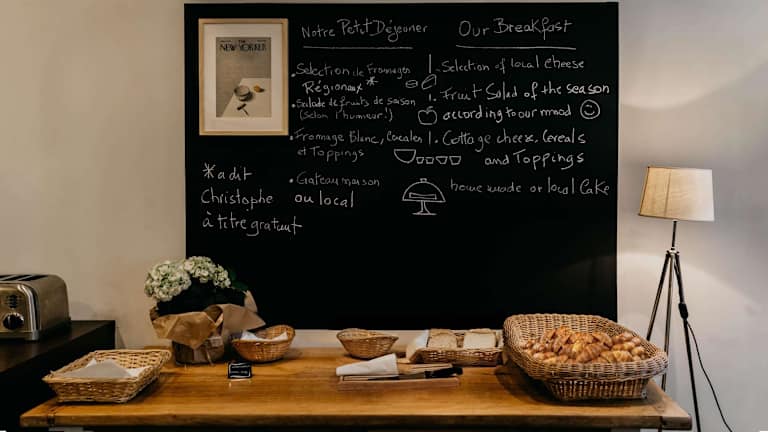 THE
NEW YORKER
Notre Petit Déjeuner
Selection de Fromages
Régionaux *
Salade de fruits de saison
(selon l'humeur!)
Fromage Blanc, Céréales
et Toppings
Gateau maison
ou local
*a dit
Christophe
à titre gratuit
Our Breakfast
Selection of local cheese
Fruit Salad of the season
according to our mood
Cottage cheese, Cereals
and Toppings
home made or local Cake